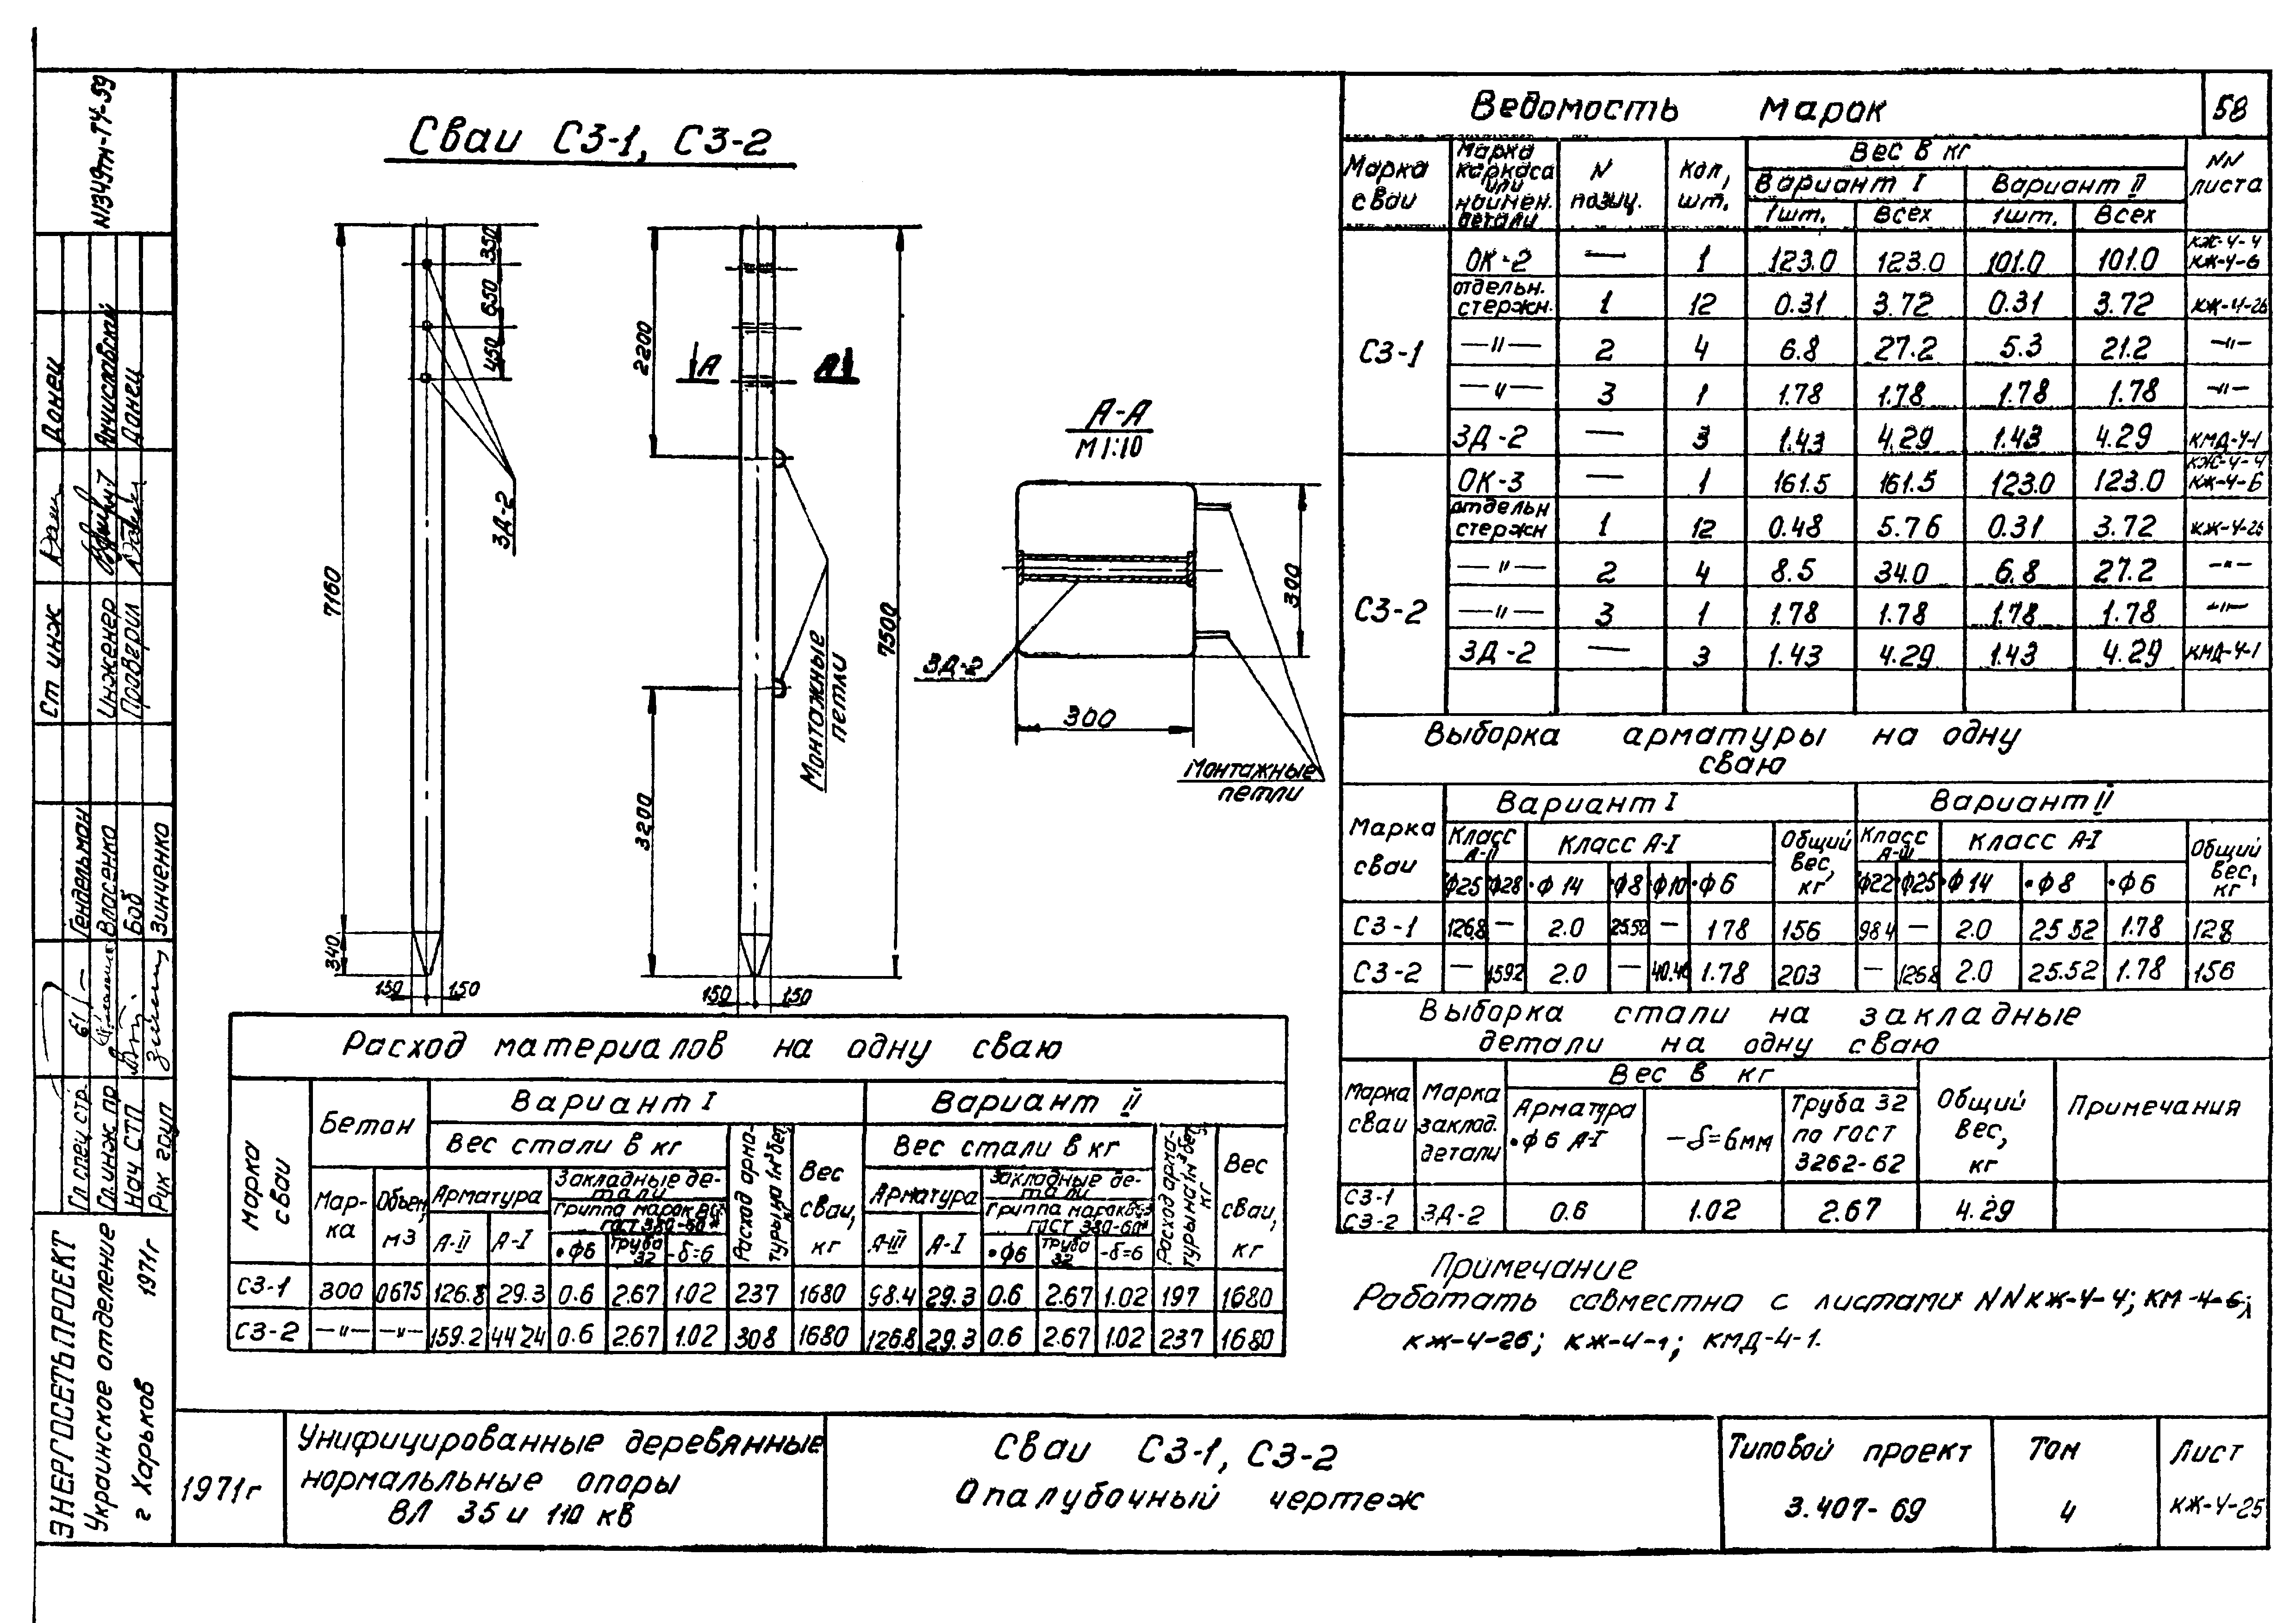 Сваи С3-1, С3-2
7160
340
150 150
350
650
450
ЗД-2
2200
3200
7500
А А
150 150
Монтажные
петли
А-А
М1:10
ЗД-2
300
300
Монтажные
петли
Ведомость марок
58
Марка сваи | Марка каркаса или наимен. детали | N позиц. | Кол, шт. | Вес в кг | NN листа
Вариант I | Вариант II
1шт. | Всех | 1шт. | Всех
С3-1
ОК-2 — 1 123.0 123.0 101.0 101.0 КЖ-4-4 КЖ-4-6
отдельн. стержн. 1 12 0.31 3.72 0.31 3.72 КЖ-4-26
—"— 2 4 6.8 27.2 5.3 21.2 —"—
—"— 3 1 1.78 1.78 1.78 1.78 —"—
ЗД-2 — 3 1.43 4.29 1.43 4.29 КМД-4-1
С3-2
ОК-3 — 1 161.5 161.5 123.0 123.0 КЖ-4-4 КЖ-4-6
отдельн стержн 1 12 0.48 5.76 0.31 3.72 КЖ-4-26
—"— 2 4 8.5 34.0 6.8 27.2 —"—
—"— 3 1 1.78 1.78 1.78 1.78 —"—
ЗД-2 — 3 1.43 4.29 1.43 4.29 КМД-4-1
Выборка арматуры на одну
сваю
Марка сваи | Вариант I | Вариант II
Класс А-II | Класс А-I | Общий вес, кг | Класс А-III | Класс А-I | Общий вес, кг
•ф25 •ф28 •ф14 •ф8 •ф10 •ф6 •ф22 •ф25 •ф14 •ф8 •ф6
С3-1 126.8 — 2.0 25.52 — 178 156 98.4 — 2.0 25 52 1.78 128
С3-2 — 159.2 2.0 — 40.46 1.78 203 — 126.8 2.0 25.52 1.78 156
Выборка стали на закладные
детали на одну сваю
Марка сваи | Марка заклад. детали | Вес в кг | Общий вес, кг | Примечания
Арматура •ф6 А-I | —δ=6мм | Труба 32 по гост 3262-62
С3-1 С3-2 ЗД-2 0.6 1.02 2.67 4.29
Примечание
Работать совместно с листами NN КЖ-4-4; КМ-4-6;
КЖ-4-26; КЖ-4-1; КМД-4-1.
Расход материалов на одну сваю
Марка сваи | Бетон | Вариант I | Вариант II
Марка | Объем, м3
Вес стали в кг | Расход арматуры на 1м³ бет, кг | Вес сваи, кг | Вес стали в кг | Расход арматуры на 1м³ бет, кг | Вес сваи, кг
Арматура | Закладные детали | Арматура | Закладные детали
группа марок ВСт.3 гост 380-60* | группа марок ВСт.3 гост 380-60*
А-II А-I •ф6 Труба 32 -δ=6 А-III А-I •ф6 Труба 32 -δ=6
С3-1 300 0675 126.8 29.3 0.6 2.67 1.02 237 1680 98.4 29.3 0.6 2.67 1.02 197 1680
С3-2 —"— —"— 159.2 44 24 0.6 2.67 1.02 308 1680 126.8 29.3 0.6 2.67 1.02 237 1680
1971г
Унифицированные деревянные
нормальльные опоры
ВЛ 35 и 110 кв
Сваи С3-1, С3-2
Опалубочный чертеж
Типовой проект
3.407-69
Том
4
Лист
КЖ-4-25
N1349тм-Т4-59
Ст инж Донец
Инженер
Проверил Донец
Гл спец стр. Гендельман
Гл. инж пр Власенко
Нач СТП Боб
Рук груп Зинченко
ЭНЕРГОСЕТЬПРОЕКТ
Украинское отделение
г Харьков 1971г